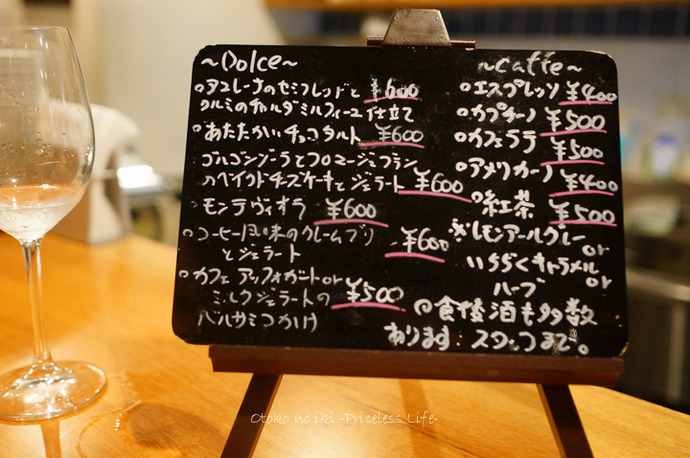 ~Dolce~
・アユレーナのセミフレッドと ¥600
クルミのチャルダミルフィーユ仕立て
・あたたかいチョコタルト ¥600
ゴルゴンゾーラとフロマージュブラン
のベイクドチーズケーキとジェラート ¥600
モンテヴィオラ ¥600
・コーヒー風味のクレームブリュ ¥600
とジェラート
・カフェアッフォガート or
ミルクジェラートの ¥500
バルサミコかけ
~Caffe~
・エスプレッソ ¥400
・カプチーノ ¥500
・カフェラテ ¥500
・アメリカーノ ¥400
・紅茶 ¥500
※レモンアールグレー or
いちぢくキャラメル or
ハーブ
◎食後酒も多数
あります。スタッフまで。
Otoko no iki -Priceless Life-